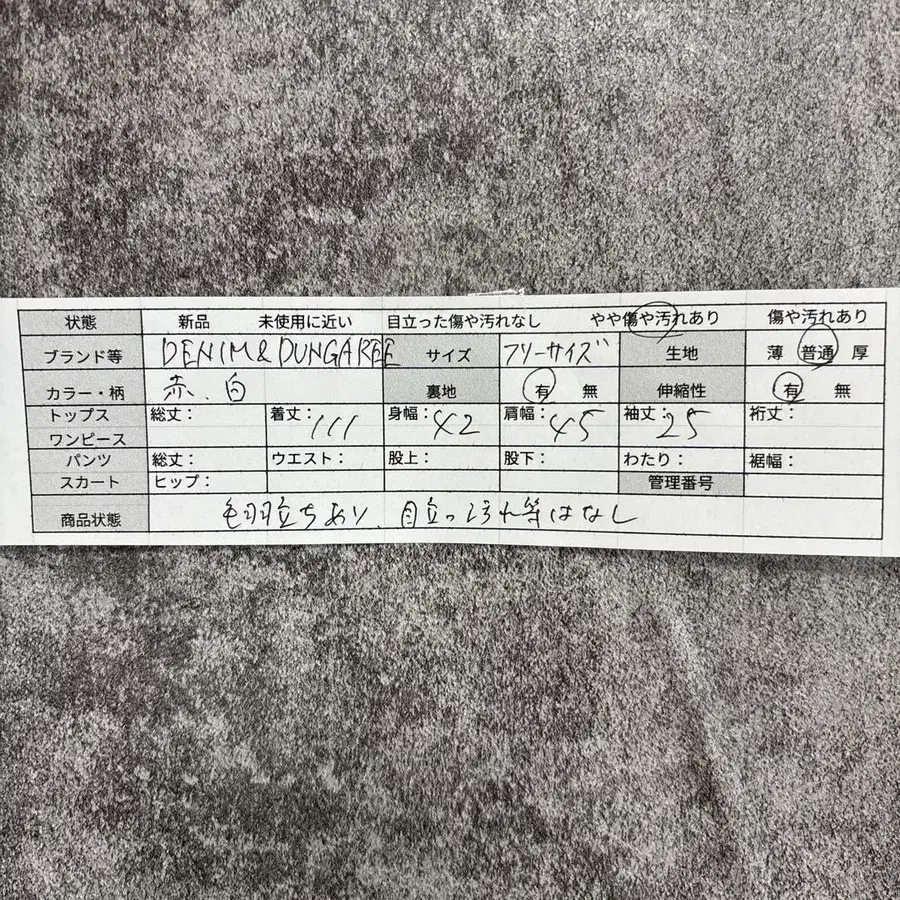 状態 新品 未使用に近い 目立った傷や汚れなし やや傷や汚れあり 傷や汚れあり
ブランド等 DENIM & DUNGAREE サイズ フリーサイズ 生地 薄 普通 厚
カラー・柄 赤、白 裏地 有 無 伸縮性 有 無
トップス 総丈： 着丈：111 身幅：42 肩幅：45 袖丈：25 裄丈：
ワンピース
パンツ 総丈： ウエスト： 股上： 股下： わたり： 裾幅：
スカート ヒップ： 管理番号
商品状態 毛羽立ちあり、目立つ汚れ等はなし